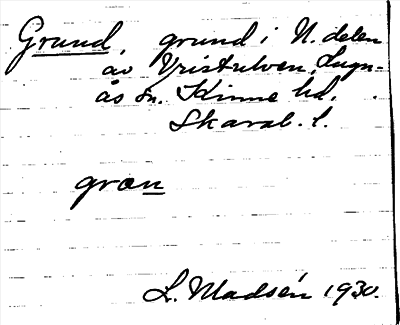 Grund, grund i N. delen
av Vristulven, Lugn-
ås sn. Kinne hd.
Skarab. l.
gron
L. Madsén 1930.